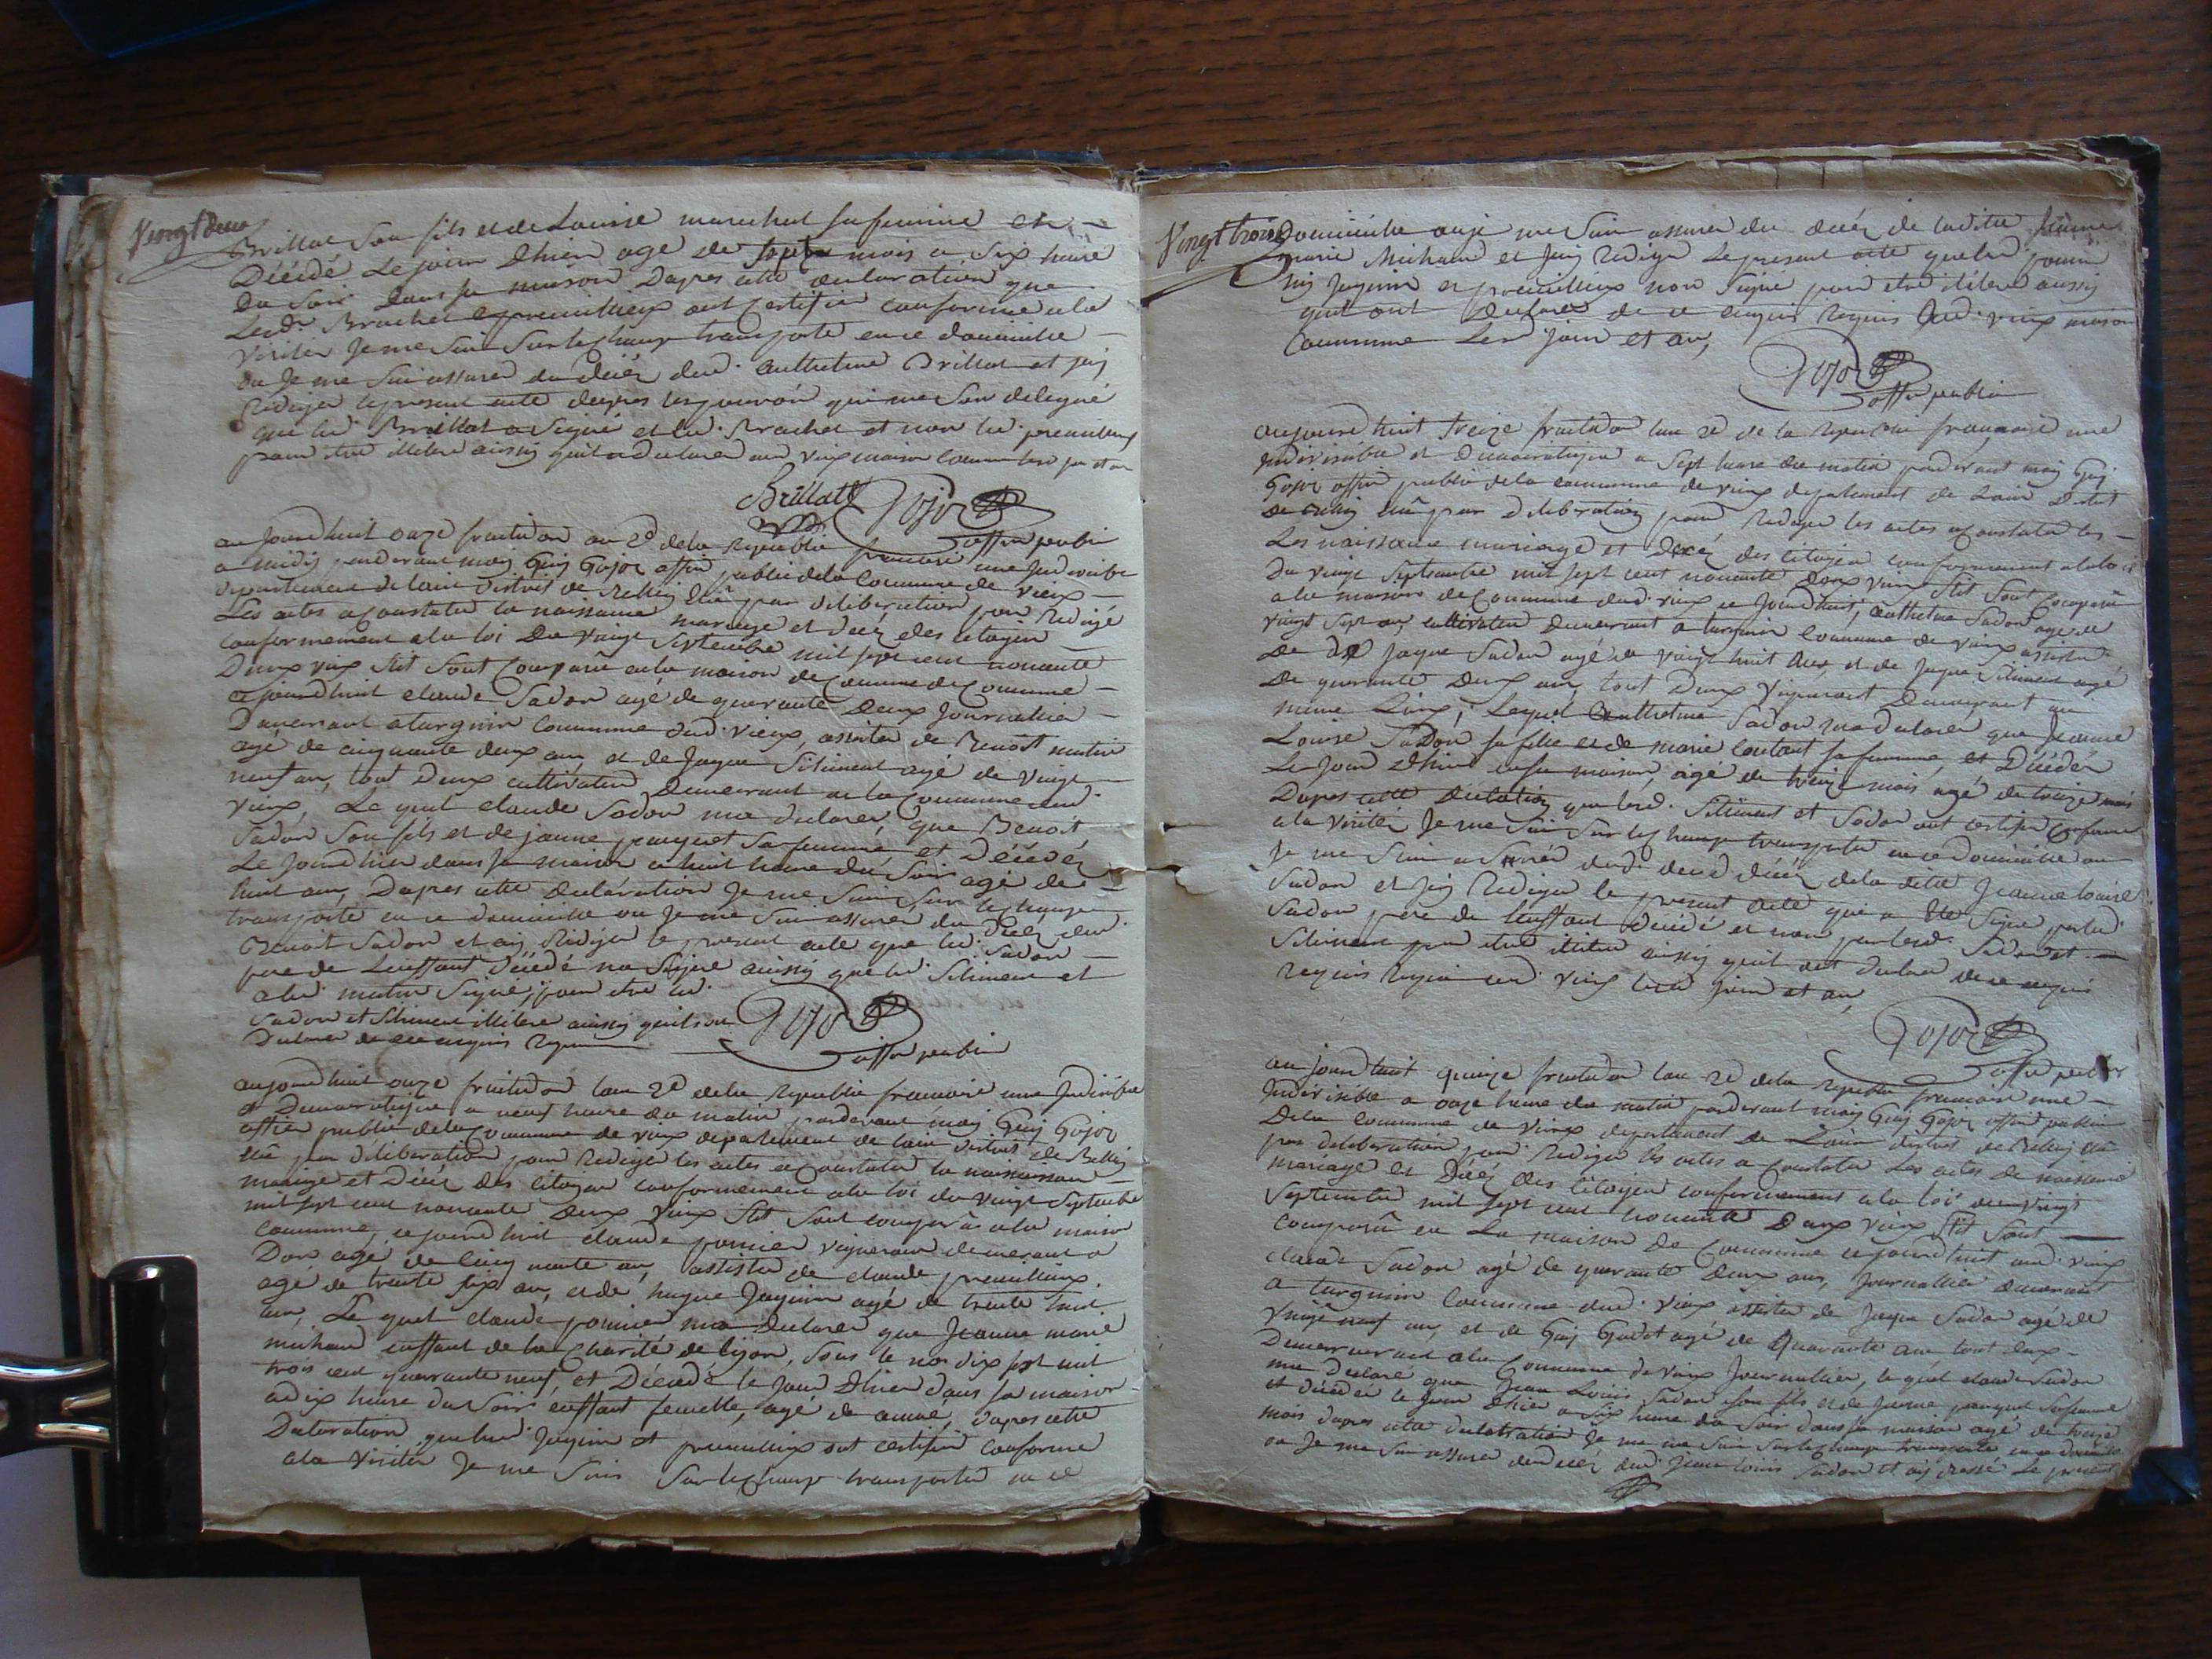 Vingt Deux
Brillat Son fils et de Louise marechal sa femme et
Décédé Le jour Dhier age de Sept mois a Six heure
Du Soir Dans sa maison Dapres cette declaration que
Led. Brachet et premillieux ont Certifié conforme a la
Vérité Je me Suis Sur le champ transporté en ce domicille
ou Je me Suis assuré du décés dud. anthelme Brillat et jay
Rediger le present acte dapres les pouvoir qui me Son delegué
que led. Brillat a Signé et led. Brachet et non led. premillieux
pour etre illitere ainsy quil a declare aud vieux maison commune led jour et an
Brillat Gojoz
offier public
au Jourdhuit onze fruitidor an 2d dela Republie francoise une Indivisible
a midy pardevant moy Guy Gojoz offier public dela Commune de vieux
departement de Lain District de Belley Elû par deliberation pour Redigé
Les actes a Constater la naissance mariage et décés des citoyen
conformement a la loi Du Vingt Septembre mil sept cent nonante
Deux vieux Stil Sont Comparû en la maison de Commune de Commune
ce jourdhuit claude Sadon agé de quarante Deux Journallier
Demeurant a turgnin Commune dud. Vieux, assisté de Benoit mutin
agé de cinquante deux an, et de Jaque Siliment agé de Vingt
neuf an, tout Deux cultivateur Demeurant a la Commune aud.
Vieux, Le quel claude Sadon ma declaré, que Benoit
Sadon Son fils et de jeanne panquet Sa femme et Décédé
Le Jourdhier dans sa maison a huit heure du Soir agé de
huit an, Dapres cette declaration Je me Suis Sur le champ
transporté en ce domicille ou Je me Suis assurer du Décés dud.
Benoit Sadon et ay Rediger le present acte que led. Sadon
pere de Lenffant Décédé na Signé ainssy que led. Siliment et
a led. mutin Signé, pour etre led.
Sadon et Siliment illitere ainsy quil son
Declaré de ce enquis Requis
Gojoz
offier public
aujourdhuit onze fruitidor lan 2e dela Republie francoise une Indivisible
et Democratique a neuf heure du matin pardevant moy Guy Gojoz
offier public dela Commune de vieux departement de lain District de Belley
Elû par déliberation pour Rediger les actes a Constater la naissance
mariage et Décés des citoyen conformement a la loi du vingt Septembre
mil sept cent nonante Deux Vieux Stil Sont comparû a la maison
Commune, ce jourdhuit claude pomier vigneron demeurant a
Don agé de Cinquante an, assisté de claude premillieux
agé de trente six an, et de hugue Juginin agé de trente huit
an, Le quel claude pomier ma Declaré que Jeanne marie
michaud enffant de la Charité de lyon, sous le no dix sept mil
trois cent quarrante neuf, et Décédé le Jour Dhier dans sa maison
a dix heure du Soir enffant femelle, agé de année, Dapres cette
Declaration que led. Juginin et premillieux ont certifié conforme
a la Vérité Je me Suis Sur le champ transporté en ce
Vingt trois
Domicille ou je me Suis assuré du décés de ladite Jeanne
marie Michaud et jay Rediger Le present acte que led. pomier
ny Juginin et premillieux non Signé pour etre ilitere aussy
quil ont Declaré de ce enquis Requis Aud. vieux maison
Commune Led jour et an,
Gojoz
offier public
aujourdhuit treize fruitidor lan 2e de la Republie francoise une
Indivisible et Democratique a Sept heure du matin pardevant moy Guy
Gojoz offier public dela commune de vieux departement de Lain District
de Belley Elû par deliberation pour Rediger les actes a Constater les
Les naissance mariage et Décés des Citoyen conformement a la loi
Du vingt Septembre mil sept cent nonante Deux vieux Stil Sont Comparû
a la maison de Commune dud. vieux ce Jourdhuit, anthelme Sadon agé de
vingt Sept an, cultivateur Demeurant a turgnin Commune de Vieux assisté
De Jaque Sadon agé de vingt huit Ans et de Jaque Siliment agé
De quarante Deux an, tout Deux Vigneront Demeurant au
meme Lieux, Lequel Anthelme Sadon ma declaré que Jeanne
Louise Sadon sa fille et de marie Coutant sa femme, et Décédé
Le Jour Dhier en sa maison, agé de treize mois agé de treize mois
Dapres cette Declation que led. Siliment et Sadon ont certifié conforme
a la Vérité Je me Suis Sur le champ transporté en ce Domicille ou
Je me Suis a Surré dud. decé décés dela ditte Jeanne Louise
Sadon et Jay Rediger le present Acte qui a Ete Signé par led.
Sadon pere de lenffant Décédé et non par led. Sadon et
Siliment pour etre ilitere ainssy quil ont declaré de ce enquis
Requis Requis aud. vieux led jour et an,
Gojoz
offier public
au jourdhuit quinze fruitidor lan 2e dela Republie francoise une
Indivisible a onze heure du matin pardevant moy Guy Gojoz offier public
Dela commune de Vieux departement de Lain district de Belley Elû
par deliberation pour Rediger les actes a Constater Les actes de naissance
mariage et Décés des Citoyen conformement a la loi du vingt
Septembre mil sept cent nonante Deux vieux Stil Sont
Comparû en La maison de Commune ce jourdhuit aud. vieux
claude Sadon agé de quarante Deux ans, Journallier demeurant
a turgnin Commune dud. vieux assisté de Jaque Sadon agé de
Vingt neuf an, et de Guy Godet agé de Quarante an tout deux
Demeurant a la Commune de vieux Journalier, le quel claude Sadon
ma Declaré que Jean Louis Sadon Son fils et de Jeanne panquet Sa femme
et décédé le Jour Dhier a Six heure du Soir dans sa maison agé de treize
mois dapres cette declatration Je me Suis Sur le champ transporté en ce domicille
ou Je me Suis assuré du décés dud. Jean Louis Sadon et ay dressé le present